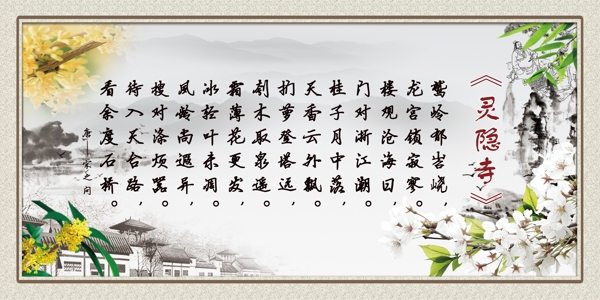 《灵隐寺》
鹫岭郁岧峣，
龙宫锁寂寥。
楼观沧海日，
门对浙江潮。
桂子月中落，
天香云外飘。
扪萝登塔远，
刳木取泉遥。
霜薄花更发，
冰轻叶未凋。
夙龄尚遐异，
搜对涤烦嚣。
待入天台路，
看余度石桥。
唐——宋之问